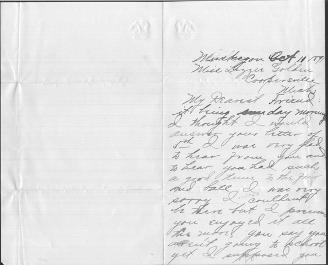 Muskegon Oct 10 189
Miss Lizzie
Coopersville
Mich
My Dearest Friend:
It being day morning
I thought I would
answer your letter of
5th I was very glad
to hear from you and
to hear you had such
a good time to the
and ball I was very
sorry I couldn't
be there but I
you enjoyed it all
the more you say you
aren't going to school
yet I supposed you